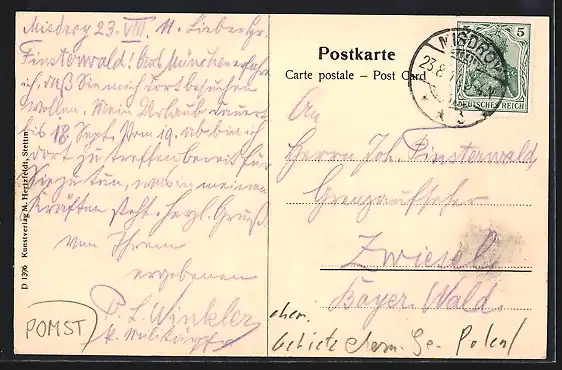 Misdroy 23. VIII. 11. Lieber Hr.
Finsterwald! Aus München erfahre
ich, daß Sie mich dort besuchen
wollen. Mein Urlaub dauert
bis 18. Sept. Vom 19. ab bin ich
dort zu treffen bereit für
Sie zu tun, was in meinen
Kräften steht. Herzl. Gruß
von Ihrem
ergebenen
P. L. Winkler
k.
POMST
D 1396 Kunstverlag M. Hertzfeldt, Stettin
Postkarte
Carte postale – Post Card
MISDROY
23.8.
5
DEUTSCHES REICH
An
Herrn Joh. Finsterwald,
Grenzaufseher
Zwiesel
Bayer. Wald.
ehem.
Gebiete Polen